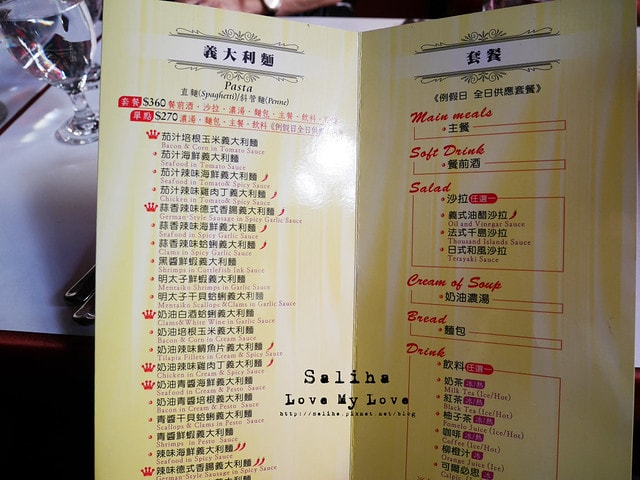 義大利麵
Pasta
直麵(Spaghetti)/斜管麵(Penne)
套餐 $360 餐前酒‧沙拉‧濃湯‧麵包‧主餐‧飲料
單點 $270 濃湯‧麵包‧主餐‧飲料《例假日全日供應
茄汁培根玉米義大利麵
Bacon & Corn in Tomato Sauce
茄汁海鮮義大利麵
Seafood in Tomato Sauce
茄汁辣味海鮮義大利麵
Seafood in Tomato& Spicy Sauce
茄汁辣味雞肉丁義大利麵
Chicken in Tomato& Spicy Sauce
蒜香辣味德式香腸義大利麵
German-Style Sausage in Spicy Garlic Sauce
蒜香辣味海鮮義大利麵
Seafood in Spicy Garlic Sauce
蒜香辣味蛤蜊義大利麵
Clams in Spicy Garlic Sauce
黑醬鮮蝦義大利麵
Shrimps in Cuttlefish Ink Sauce
明太子鮮蝦義大利麵
Mentaiku Shrimps in Garlic Sauce
明太子干貝蛤蜊義大利麵
Mentaiku Scallops &Clams in Garlic Sauce
奶油白酒蛤蜊義大利麵
Clams&White Wine in Garlic Sauce
奶油培根玉米義大利麵
Bacon & Corn in Cream Sauce
奶油辣味鯛魚片義大利麵
Tilapia Fillets in Cream & Spicy Sauce
奶油辣味雞肉丁義大利麵
Chicken in Cream & Spicy Sauce
奶油青醬海鮮義大利麵
Seafood in Cream & Pesto Sauce
奶油青醬培根義大利麵
Bacon in Cream & Pesto Sauce
青醬干貝蛤蜊義大利麵
Scallops & Clams in Pesto Sauce
青醬鮮蝦義大利麵
Shrimps in Pesto Sauce
辣味海鮮義大利麵
Seafood in Spicy Sauce
辣味德式香腸義大利麵
German-Style Sausage in Spicy Sauce
套餐
《例假日 全日供應套餐》
Main meals
主餐
Soft Drink
餐前酒
Salad
沙拉 任選一
義式油醋沙拉
Oil and Vinegar Sauce
法式千島沙拉
Thousand Islands Sauce
日式和風沙拉
Terayaki Sauce
Cream of Soup
奶油濃湯
Bread
麵包
Drink
飲料 任選一
奶茶 冰/熱
Milk Tea (Ice/Hot)
紅茶 冰/熱
Black Tea (Ice/Hot)
柚子茶 冰/熱
Pomelo Juice (Ice/Hot)
咖啡 冰/熱
Coffee (Ice/Hot)
柳橙汁 冰
Orange Juice (Ice)
可爾必思 冰
Saliha
Love My Love
http://saliha.pixnet.net/blog